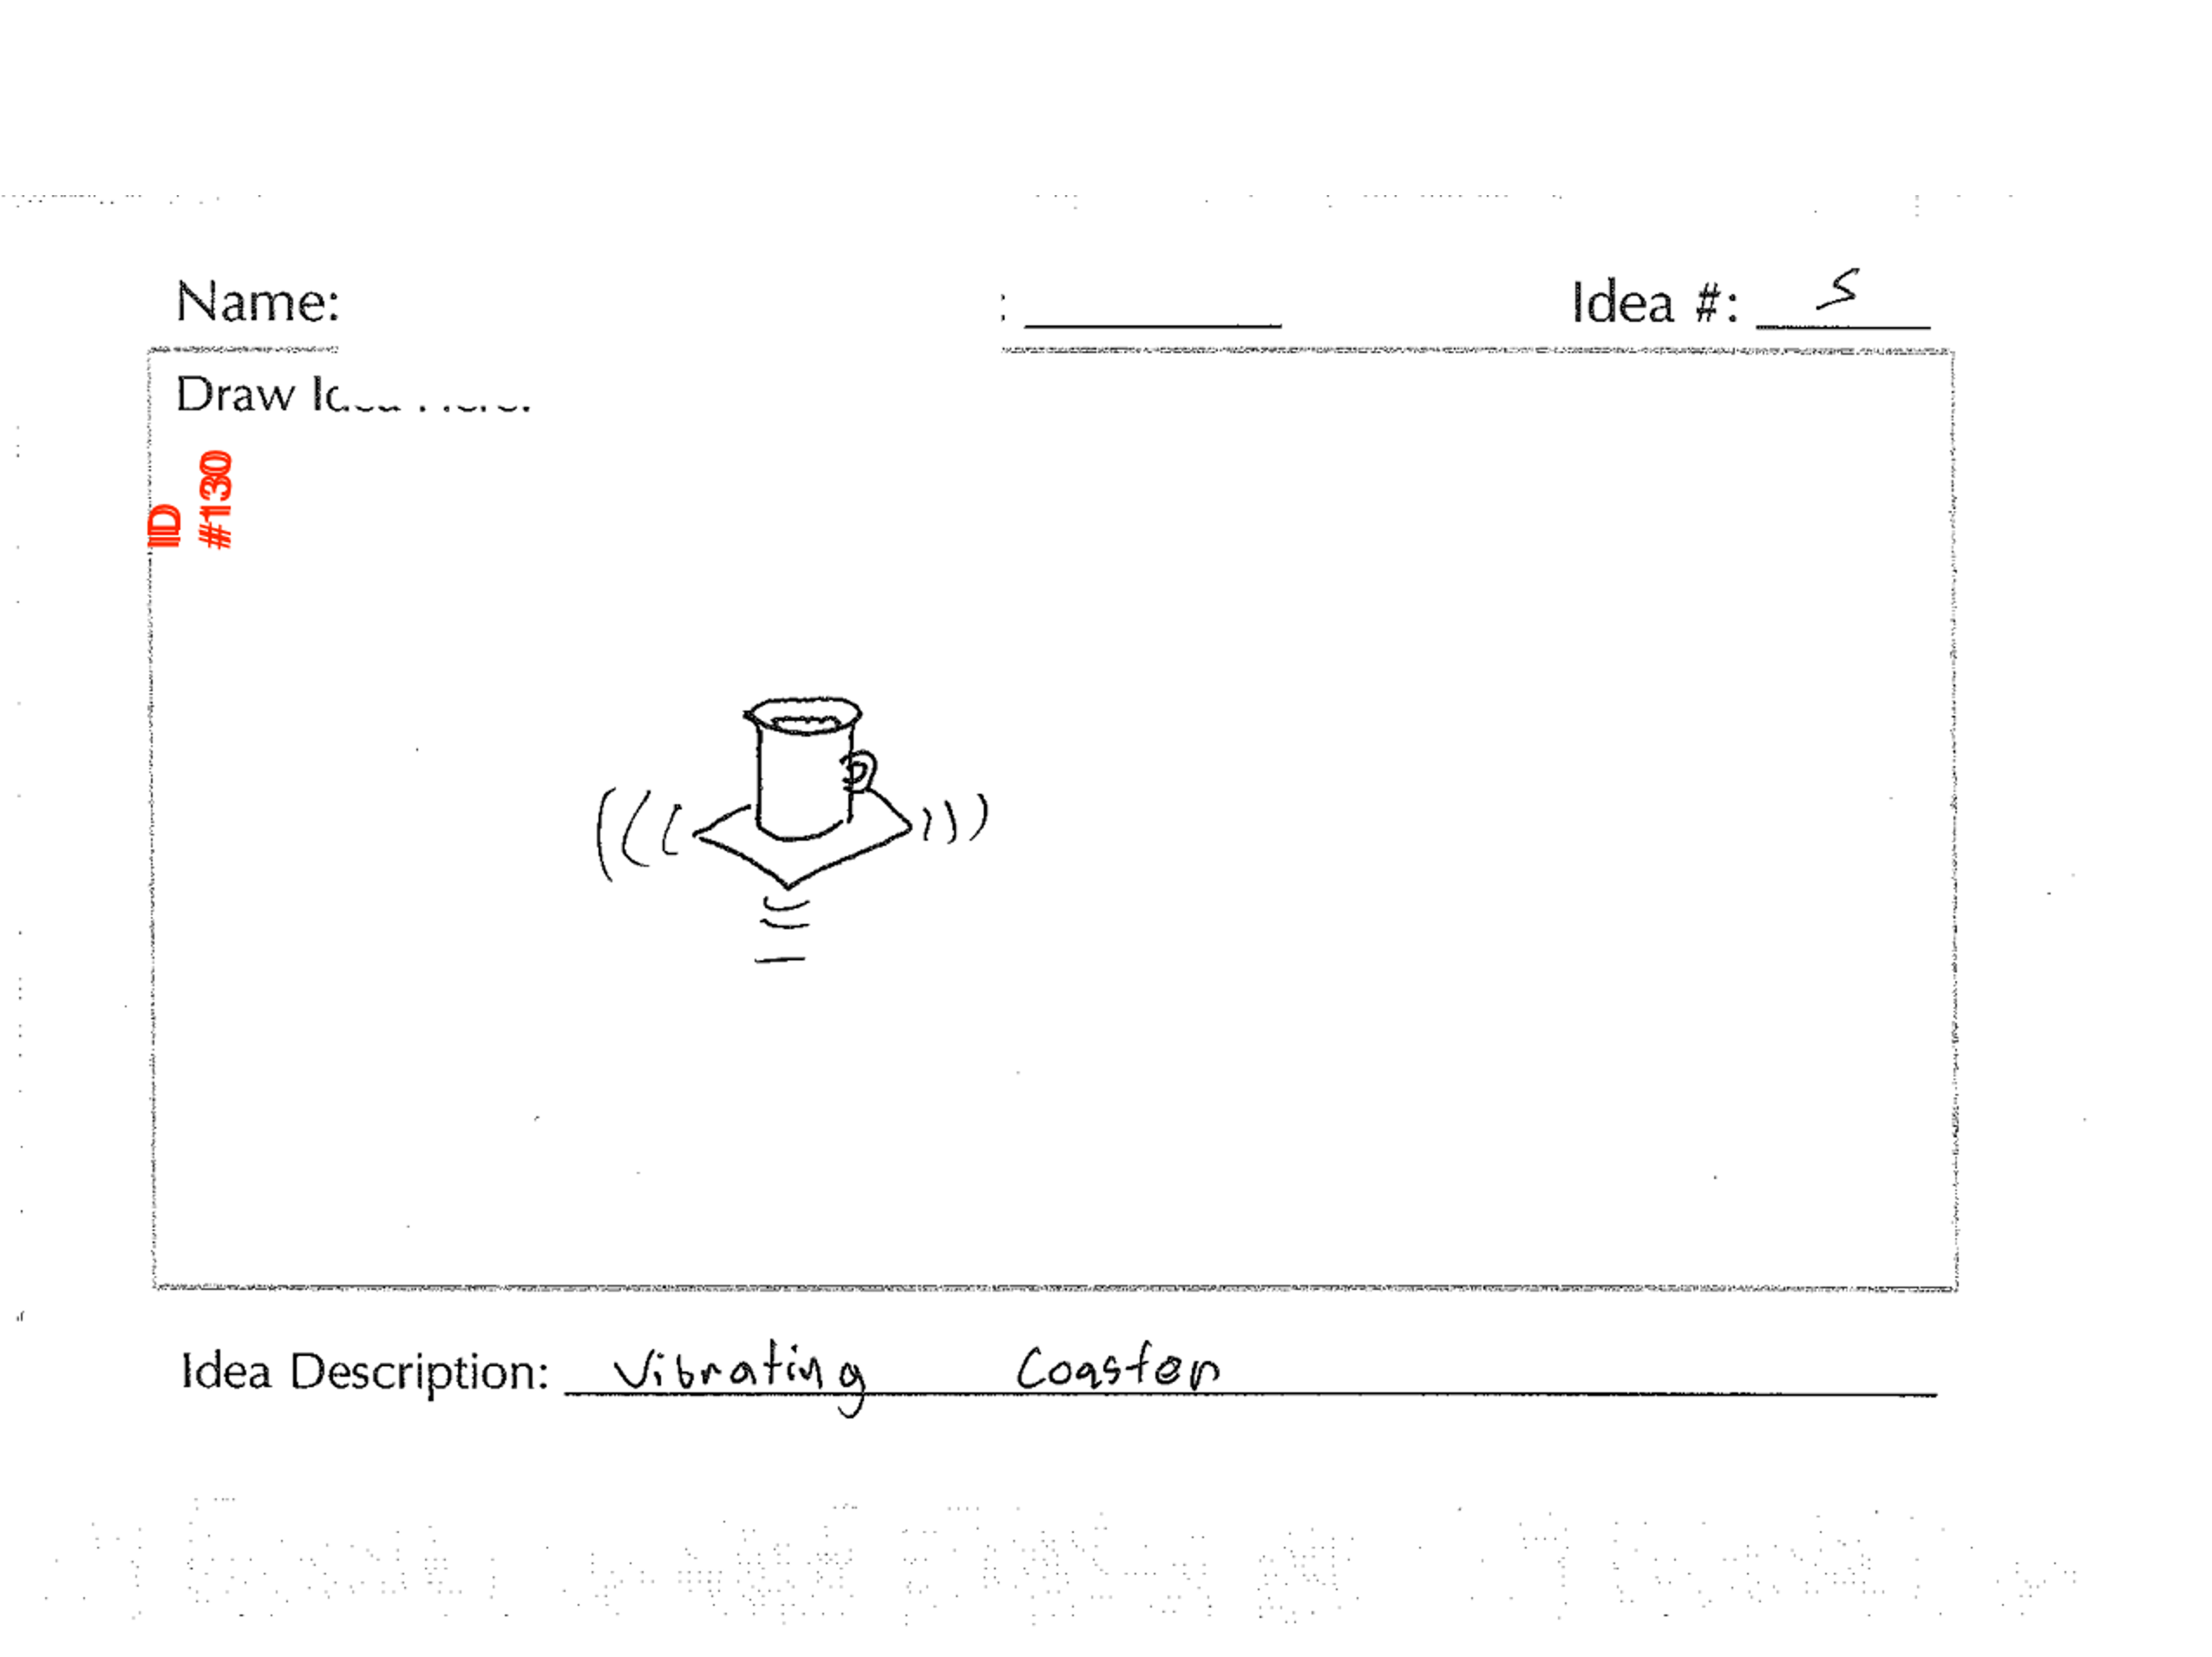 Name: : Idea #: 5
Draw Idea Here:
ID
#130
Idea Description: Vibrating Coaster